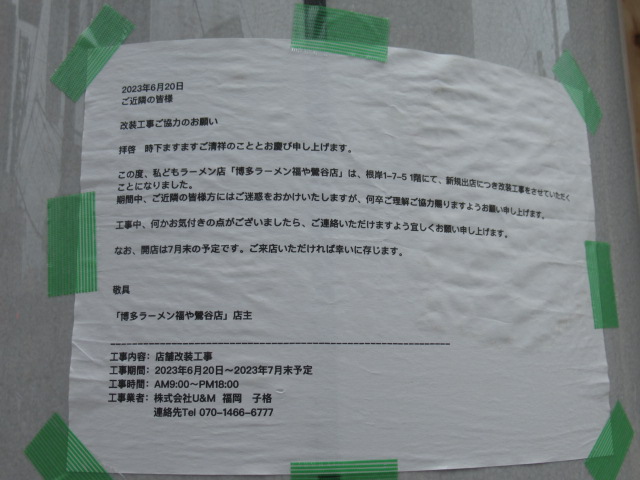 2023年6月20日
ご近隣の皆様
改装工事ご協力のお願い
拝啓　時下ますますご清祥のこととお慶び申し上げます。
この度、私どもラーメン店「博多ラーメン福や鶯谷店」は、根岸1-7-5 1階にて、新規出店につき改装工事をさせていただく
ことになりました。
期間中、ご近隣の皆様方にはご迷惑をおかけいたしますが、何卒ご理解ご協力賜りますようお願い申し上げます。
工事中、何かお気付きの点がございましたら、ご連絡いただけますよう宜しくお願い申し上げます。
なお、開店は7月末の予定です。ご来店いただければ幸いに存じます。
敬具
「博多ラーメン福や鶯谷店」店主
工事内容： 店舗改装工事
工事期間： 2023年6月20日〜2023年7月末予定
工事時間： AM9:00〜PM18:00
工事業者： 株式会社U&M　福岡　子格
連絡先Tel 070-1466-6777